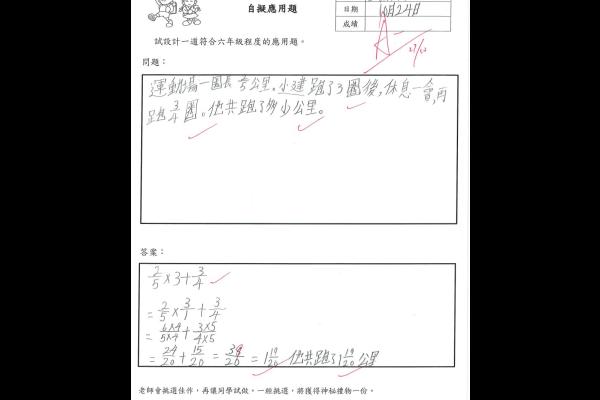 自擬應用題
日期 10月24日
成績 A-
27/10
試設計一道符合六年級程度的應用題。
問題：
運動場一圈長 2/5 公里。小建跑了3圈後，休息一會，再
跑 3/4 圈。他共跑了多少公里。
答案：
2/5 × 3 + 3/4
= 2/5 × 3/1 + 3/4
= 6×4/5×4 + 3×5/4×5
= 24/20 + 15/20 = 39/20 = 1 19/20 他共跑了 1 19/20 公里
老師會挑選佳作，再讓同學試做。一經挑選，將獲得神秘禮物一份。